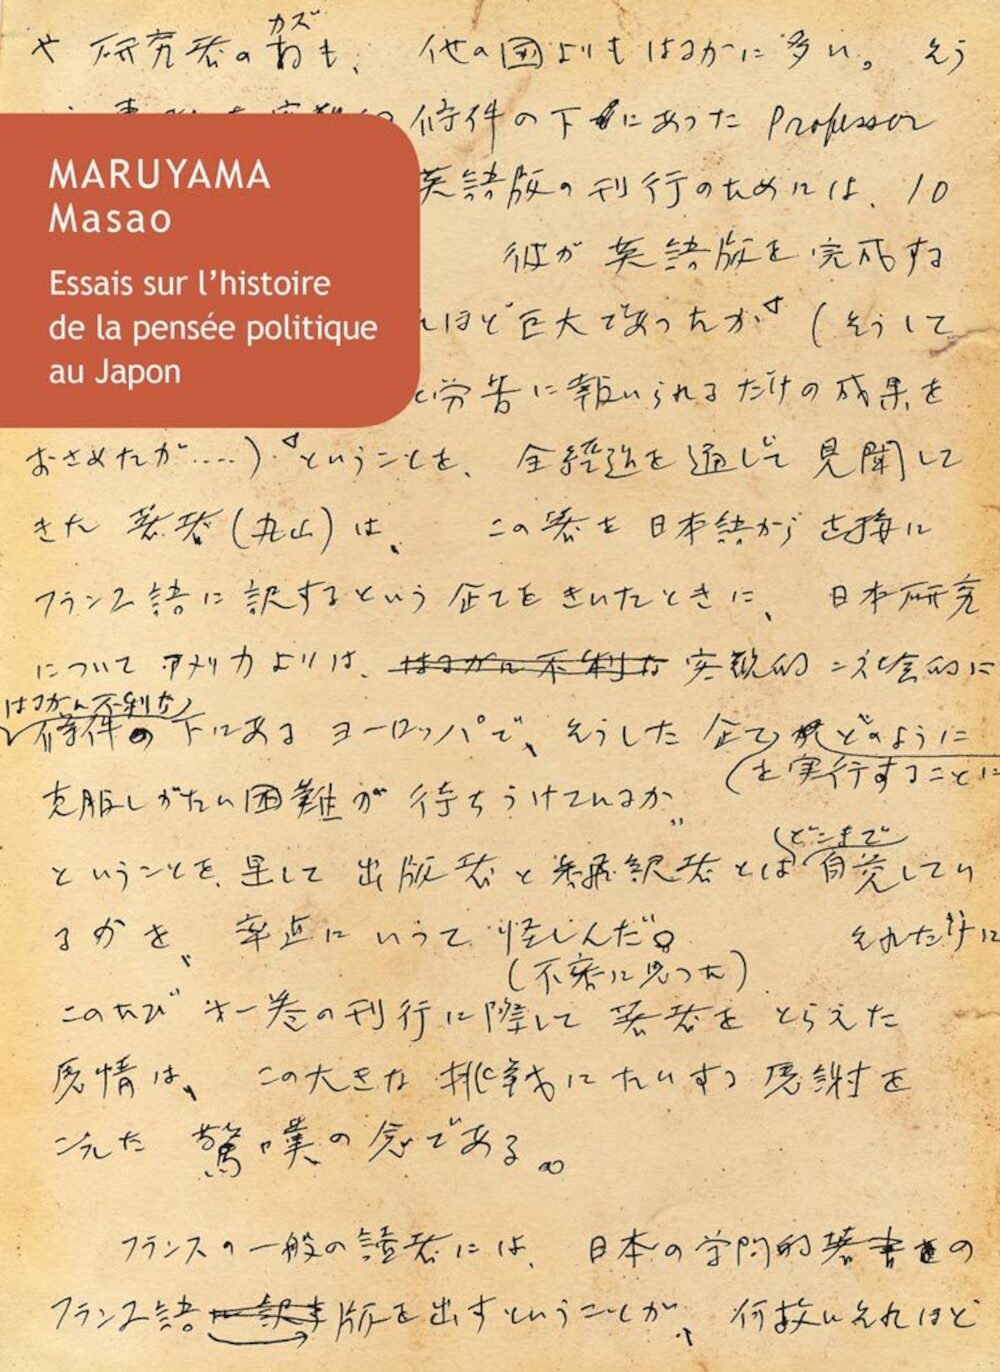 や 研究者のかずも、 他の国よりもはるかに多い。 そう
カズ
条件の下にあった Professor
英語版の刊行のためには、10
彼が 英語版を完成する
れほど巨大であったか (そうして
労苦に報いられるだけの成果を
おさめたが‥‥)ということを、 全経過を通じて見聞して
きた 著者(丸山)は、 この書を日本語から直接に
フランス語に訳するという企てをきいたときに、 日本研究
について アメリカよりは、はるかに不利な 客観的=社会的に
はるかに不利な
条件の下にある ヨーロッパで、そうした企て どのように
を実行することに
克服しがたい困難が待ちうけているか"
ということを、果して出版者と 訳者とは 自覚してい
どこまで
るかを、率直にいって 怪しんだ。 それだけに
(不審に思った)
このたび 第一巻の刊行に際して 著者をとらえた
感情は、 この大きな 挑戦にたいする 感謝を
こえた 驚嘆の念である。
フランスの一般の読者には、 日本の学問的著書の
フランス語 版を出すということが、 何故にそれほど
MARUYAMA
Masao
Essais sur l'histoire
de la pensée politique
au Japon